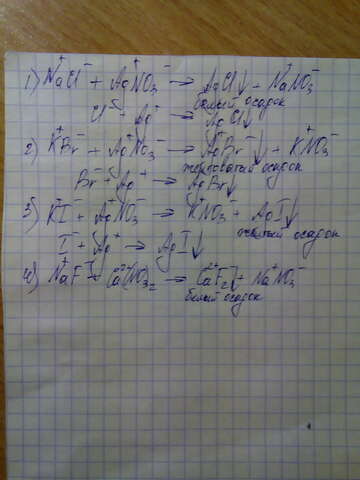 1) Na⁺Cl⁻ + Ag⁺NO₃⁻ → AgCl↓ + Na⁺NO₃⁻
белый осадок
Cl⁻ + Ag⁺ → AgCl↓
2) K⁺Br⁻ + Ag⁺NO₃⁻ → Ag⁺Br⁻↓ + K⁺NO₃⁻
желтоватый осадок
Br⁻ + Ag⁺ → AgBr↓
3) K⁺I⁻ + Ag⁺NO₃⁻ → K⁺NO₃⁻ + AgI↓
желтый осадок
I⁻ + Ag⁺ → AgI↓
4) Na⁺F⁻ + Ca²⁺(NO₃)₂ → Ca²⁺F₂⁻↓ + Na⁺NO₃⁻
белый осадок